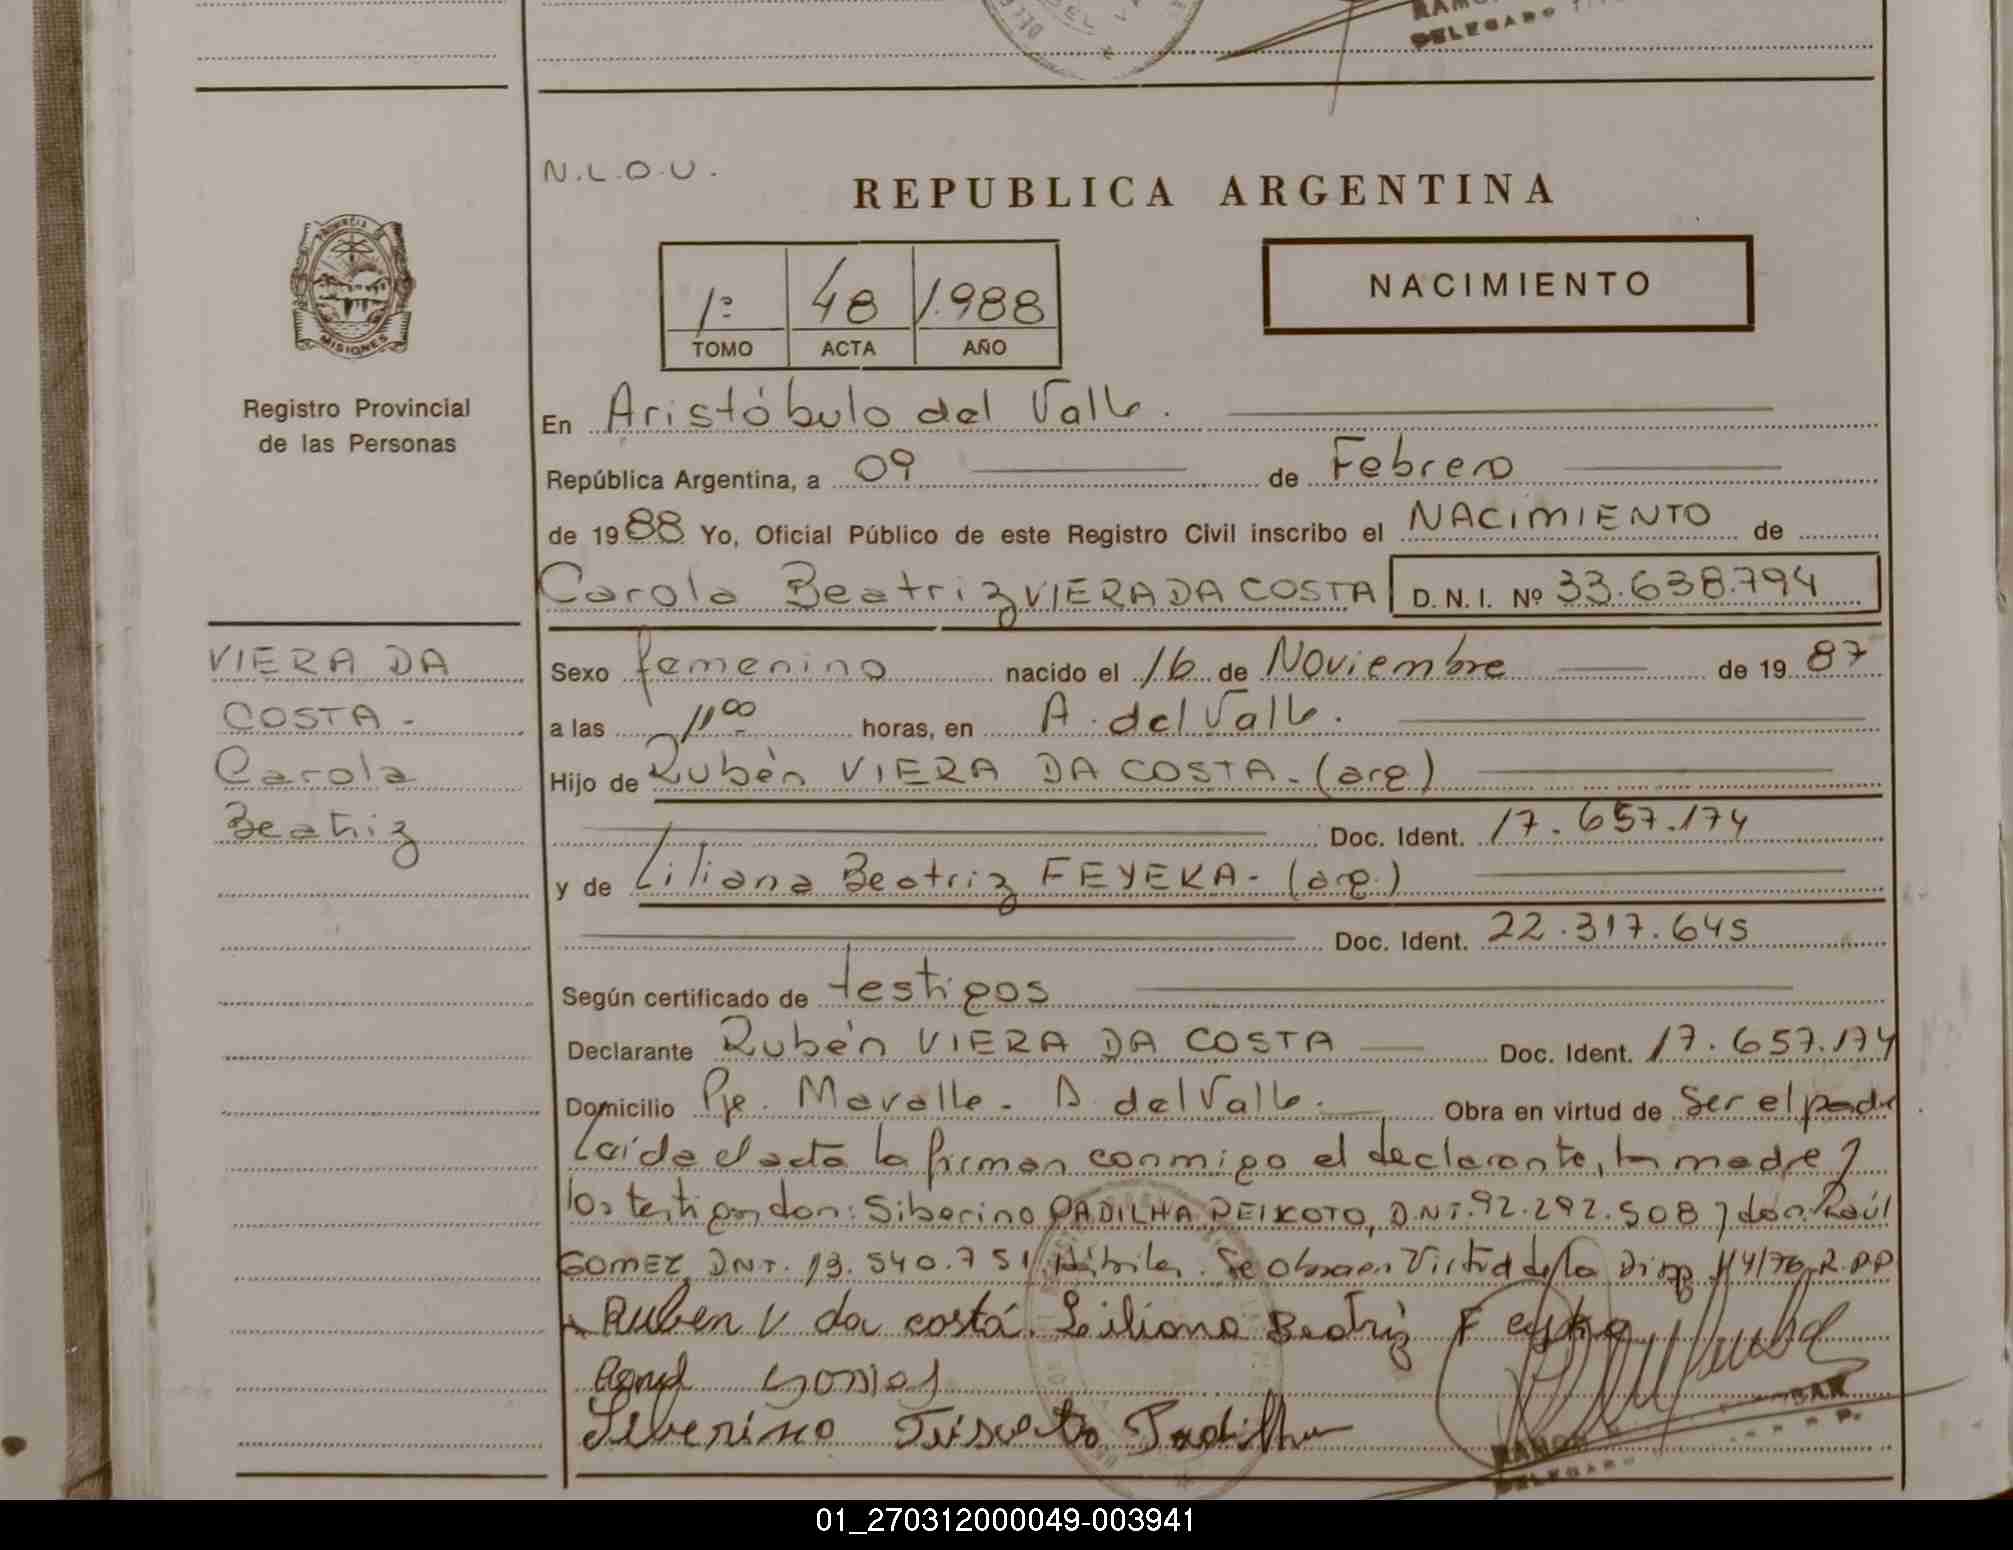 RAMON
DELEGADO
N.L.O.U.
REPUBLICA ARGENTINA
PROVINCIA
MISIONES
Registro Provincial
de las Personas
1º 48 1.988
TOMO ACTA AÑO
NACIMIENTO
En Aristóbulo del Valle.
República Argentina, a 09 de Febrero
de 1988 Yo, Oficial Público de este Registro Civil inscribo el NACIMIENTO de
Carola Beatriz VIERA DA COSTA D. N. I. Nº 33.638.794
VIERA DA
COSTA -
Carola
Beatriz
Sexo femenino nacido el 16 de Noviembre de 1987
a las 11 00 horas, en A. del Valle.
Hijo de Rubén VIERA DA COSTA - (arg)
Doc. Ident. 17.657.174
y de Liliana Beatriz FEYEKA - (arg.)
Doc. Ident. 22.317.645
Según certificado de testigos
Declarante Rubén VIERA DA COSTA Doc. Ident. 17.657.174
Domicilio Pje. Mavalle - A. del Valle. Obra en virtud de Ser el padre
Leída el acta la firman conmigo el declarante, la madre y
los testigos don: Siberino PADILHA PEIXOTO, D.N.I. 92.292.508 y don Raúl
GOMEZ, DNI. 13.540.751 Hábiles. Se obra en Virtud de la Disp 114/76 R.PP
Ruben V da costa. Liliana Beatriz
Siberino Padilha
RAMON
DELEGADO
01_270312000049-003941